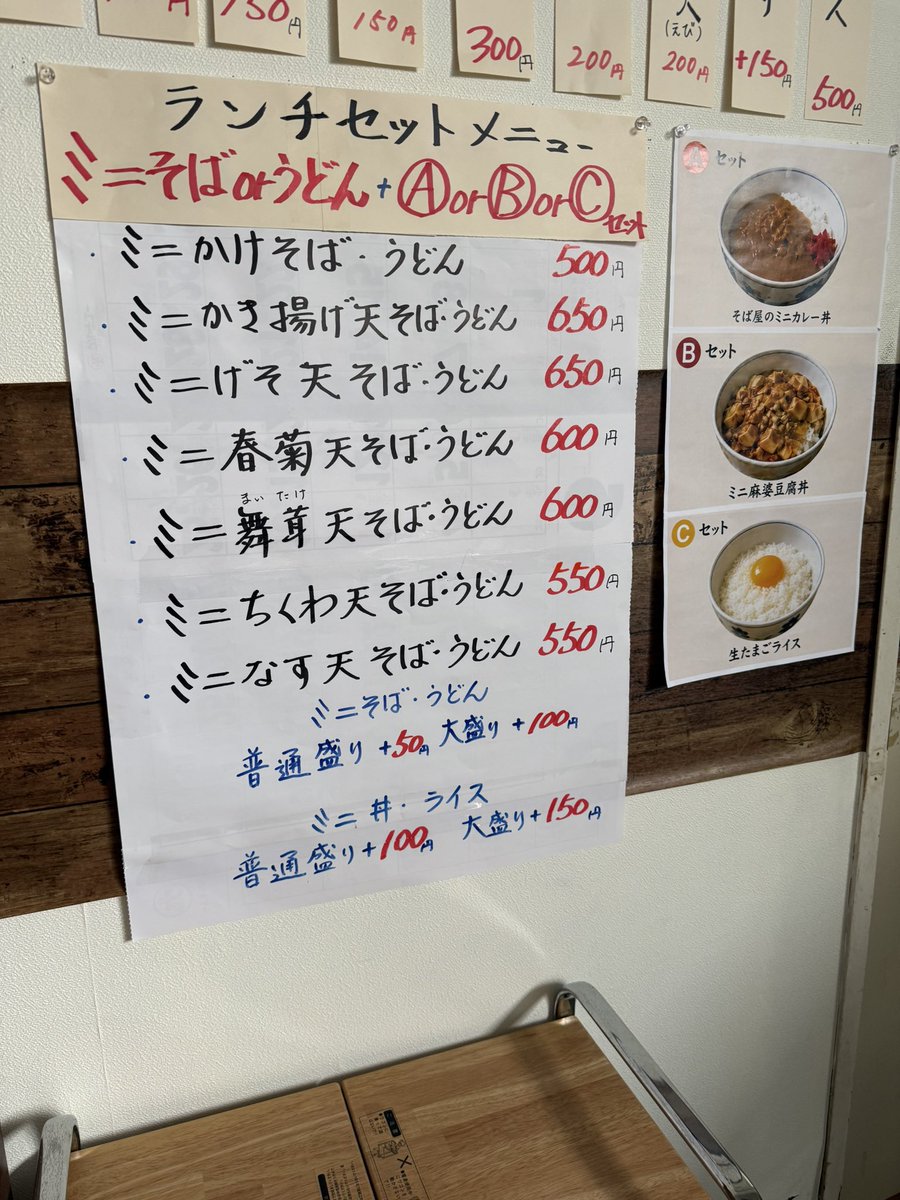 150円
150円
300円
200円
(えび)
200円
+150円
500円
ランチセットメニュー
ミニそばorうどん+ⒶorⒷorⒸセット
・ミニかけそば・うどん 500円
・ミニかき揚げ天そば・うどん 650円
・ミニげそ天そば・うどん 650円
・ミニ春菊天そば・うどん 600円
まいたけ
・ミニ舞茸天そば・うどん 600円
・ミニちくわ天そば・うどん 550円
・ミニなす天そば・うどん 550円
ミニそば・うどん
普通盛り+50円 大盛り+100円
ミニ丼・ライス
普通盛り+100円 大盛り+150円
Aセット
そば屋のミニカレー丼
Bセット
ミニ麻婆豆腐丼
Cセット
生たまごライス